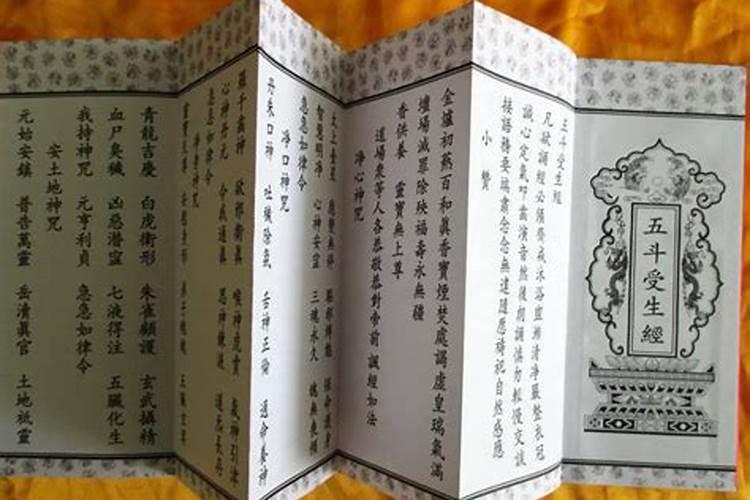 五斗受生經
五斗受生經
凡欲誦經必須齋戒沐浴盥漱清淨嚴整衣冠
誠心定氣叩齒演音然後朗誦慎勿輕慢交談
接語務要端肅念念無違隨應禱祀自然感應
小贊
金爐初爇百和真香寶煙焚處謁虛皇瑞氣滿
壇場滅罪除殃福壽永無疆
香供養 靈寶無上尊
道場眾等人各恭敬恭對帝前 誦經如法
淨心神咒
太上台星 應變無停 驅邪縛魅 保命護身
智慧明淨 心神安寧 三魂永久 魄無喪傾
急急如律令
淨口神咒
丹朱口神 吐穢除氛 舌神正倫 通命養神
羅千齒神 却邪衛真 喉神虎賁 炁神引津
心神丹元 令我通真 思神鍊液 道炁長存
急急如律令
淨身神咒
靈寶天尊 安慰身形 弟子魂魄 五臟玄冥
青龍吉慶 白虎衛形 朱雀顧護 玄武攝精
血尸臭穢 凶惡潛寍 七液得注 五臟化生
我持神咒 元亨利貞 急急如律令
安土地神咒
元始安鎮 普告萬靈 岳瀆真官 土地祇靈